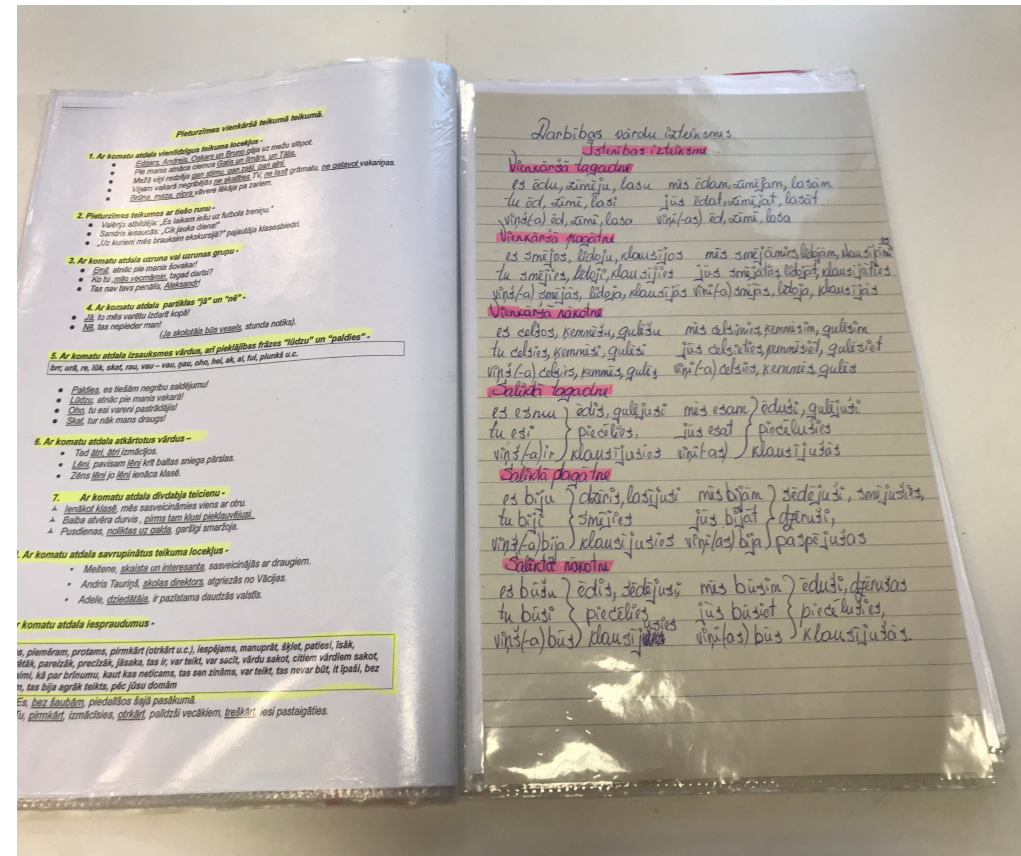 Pieturzīmes vienkāršā teikumā teikumā.
1. Ar komatu atdala vienlīdzīgus teikuma locekļus -
Edgars, Andrejs, Oskars un Bruno gāja uz mežu slēpot.
Pie manis atnāca ciemos Gatis un Ilmārs, un Tālis.
Mežā viņi redzēja gan stirnu, gan zaķi, gan alni.
Viņam vakarā negribējās ne skatīties TV, ne lasīt grāmatu, ne gatavot vakariņas.
Brūna, maza, ņipra vāvere lēkāja pa zariem.
2. Pieturzīmes teikumos ar tiešo runu -
Valērijs atbildēja: „Es laikam iešu uz futbola treniņu."
Sandris iesaucās: „Cik jauka diena!"
„Uz kurieni mēs brauksim ekskursijā?" pajautāja klasesbiedri.
3. Ar komatu atdala uzruna vai uzrunas grupu -
Emīl, atnāc pie manis šovakar!
Ko tu, mīļo vecmāmiņ, tagad darīsi?
Tas nav tavs penālis, Aleksandr!
4. Ar komatu atdala partiklas "jā" un "nē" -
Jā, to mēs varētu izdarīt kopā!
Nē, tas nepieder man!
(Ja skolotājs būs vesels, stunda notiks).
5. Ar komatu atdala izsauksmes vārdus, arī pieklājības frāzes "lūdzu" un "paldies" -
brr, urā, re, lūk, skat, rau, vau – vau, pau, oho, hei, ak, ai, fui, plunkš u.c.
Paldies, es tiešām negribu saldējumu!
Lūdzu, atnāc pie manis vakarā!
Oho, tu esi vareni pastrādājis!
Skat, tur nāk mans draugs!
6. Ar komatu atdala atkārtotus vārdus –
Tad ātri, ātri izmācījos.
Lēni, pavisam lēni krīt baltas sniega pārslas.
Zēns lēni jo lēni ienāca klasē.
7. Ar komatu atdala divdabja teicienu -
Ienākot klasē, mēs sasveicināmies viens ar otru.
Baiba atvēra durvis , pirms tam klusi pieklauvējusi.
Pusdienas, noliktas uz galda, garšīgi smaržoja.
. Ar komatu atdala savrupinātus teikuma locekļus -
Meitene, skaista un interesanta, sasveicinājās ar draugiem.
Andris Tauriņš, skolas direktors, atgriezās no Vācijas.
Adele, dziedātāja, ir pazīstama daudzās valstīs.
komatu atdala iespraudumus -
s, piemēram, protams, pirmkārt (otrkārt u.c.), iespējams, manuprāt, šķiet, patiesi, īsāk,
ētāk, pareizāk, precīzāk, jāsaka, tas ir, var teikt, var sacīt, vārdu sakot, citiem vārdiem sakot,
aimi, kā par brīnumu, kaut kas neticams, tas sen zināms, var teikt, tas nevar būt, it īpaši, bez
m, tas bija agrāk teikts, pēc jūsu domām
Es, bez šaubām, piedalīšos šajā pasākumā.
u, pirmkārt, izmācīsies, otrkārt, palīdzši vecākiem, treškārt, iesi pastaigāties.
Darbības vārdu izteiksmes
Īstenības izteiksme
Vienkāršā tagadne
es ēdu, zīmēju, lasu mēs ēdam, zīmējam, lasām
tu ēd, zīmē, lasi jūs ēdat, zīmējat, lasāt
viņš(-a) ēd, zīmē, lasa viņi(-as) ēd, zīmē, lasa
Vienkāršā pagātne
es smējos, lidoju, klausījos mēs smējāmies, lidojām, klausījām
tu smējies, lidoji, klausījies jūs smējāties, lidojāt, klausījāties
viņš(-a) smējās, lidoja, klausījās viņi(-a) smējās, lidoja, klausījās
Vienkāršā nākotne
es celšos, ķemmēšu, gulēšu mēs celsimies, ķemmēsim, gulēsim
tu celsies, ķemmēsi, gulēsi jūs celsieties, ķemmēsiet, gulēsiet
viņš(-a) celsies, ķemmēs, gulēs viņi(-a) celsies, ķemmēs gulēs
Saliktā tagadne
es esmu ēdis, gulējusi mēs esam ēduši, gulējuši
tu esi piecēlies, jūs esat piecēlušies
viņš(-a) ir klausījusies viņi(-as) klausījušās
Saliktā pagātne
es biju dzēris, lasījusi mēs bijām sēdējuši, smējušies,
tu biji smējies jūs bijāt dzēruši,
viņš(-a) bija klausījusies viņi(as) bija paspējušas
Saliktā nākotne
es būšu ēdis, sēdējusi mēs būsim ēduši, dzērušas
tu būsi piecēlies jūs būsiet piecēlušies,
viņš(-a) būs klausījusies viņi(as) būs klausījušās.